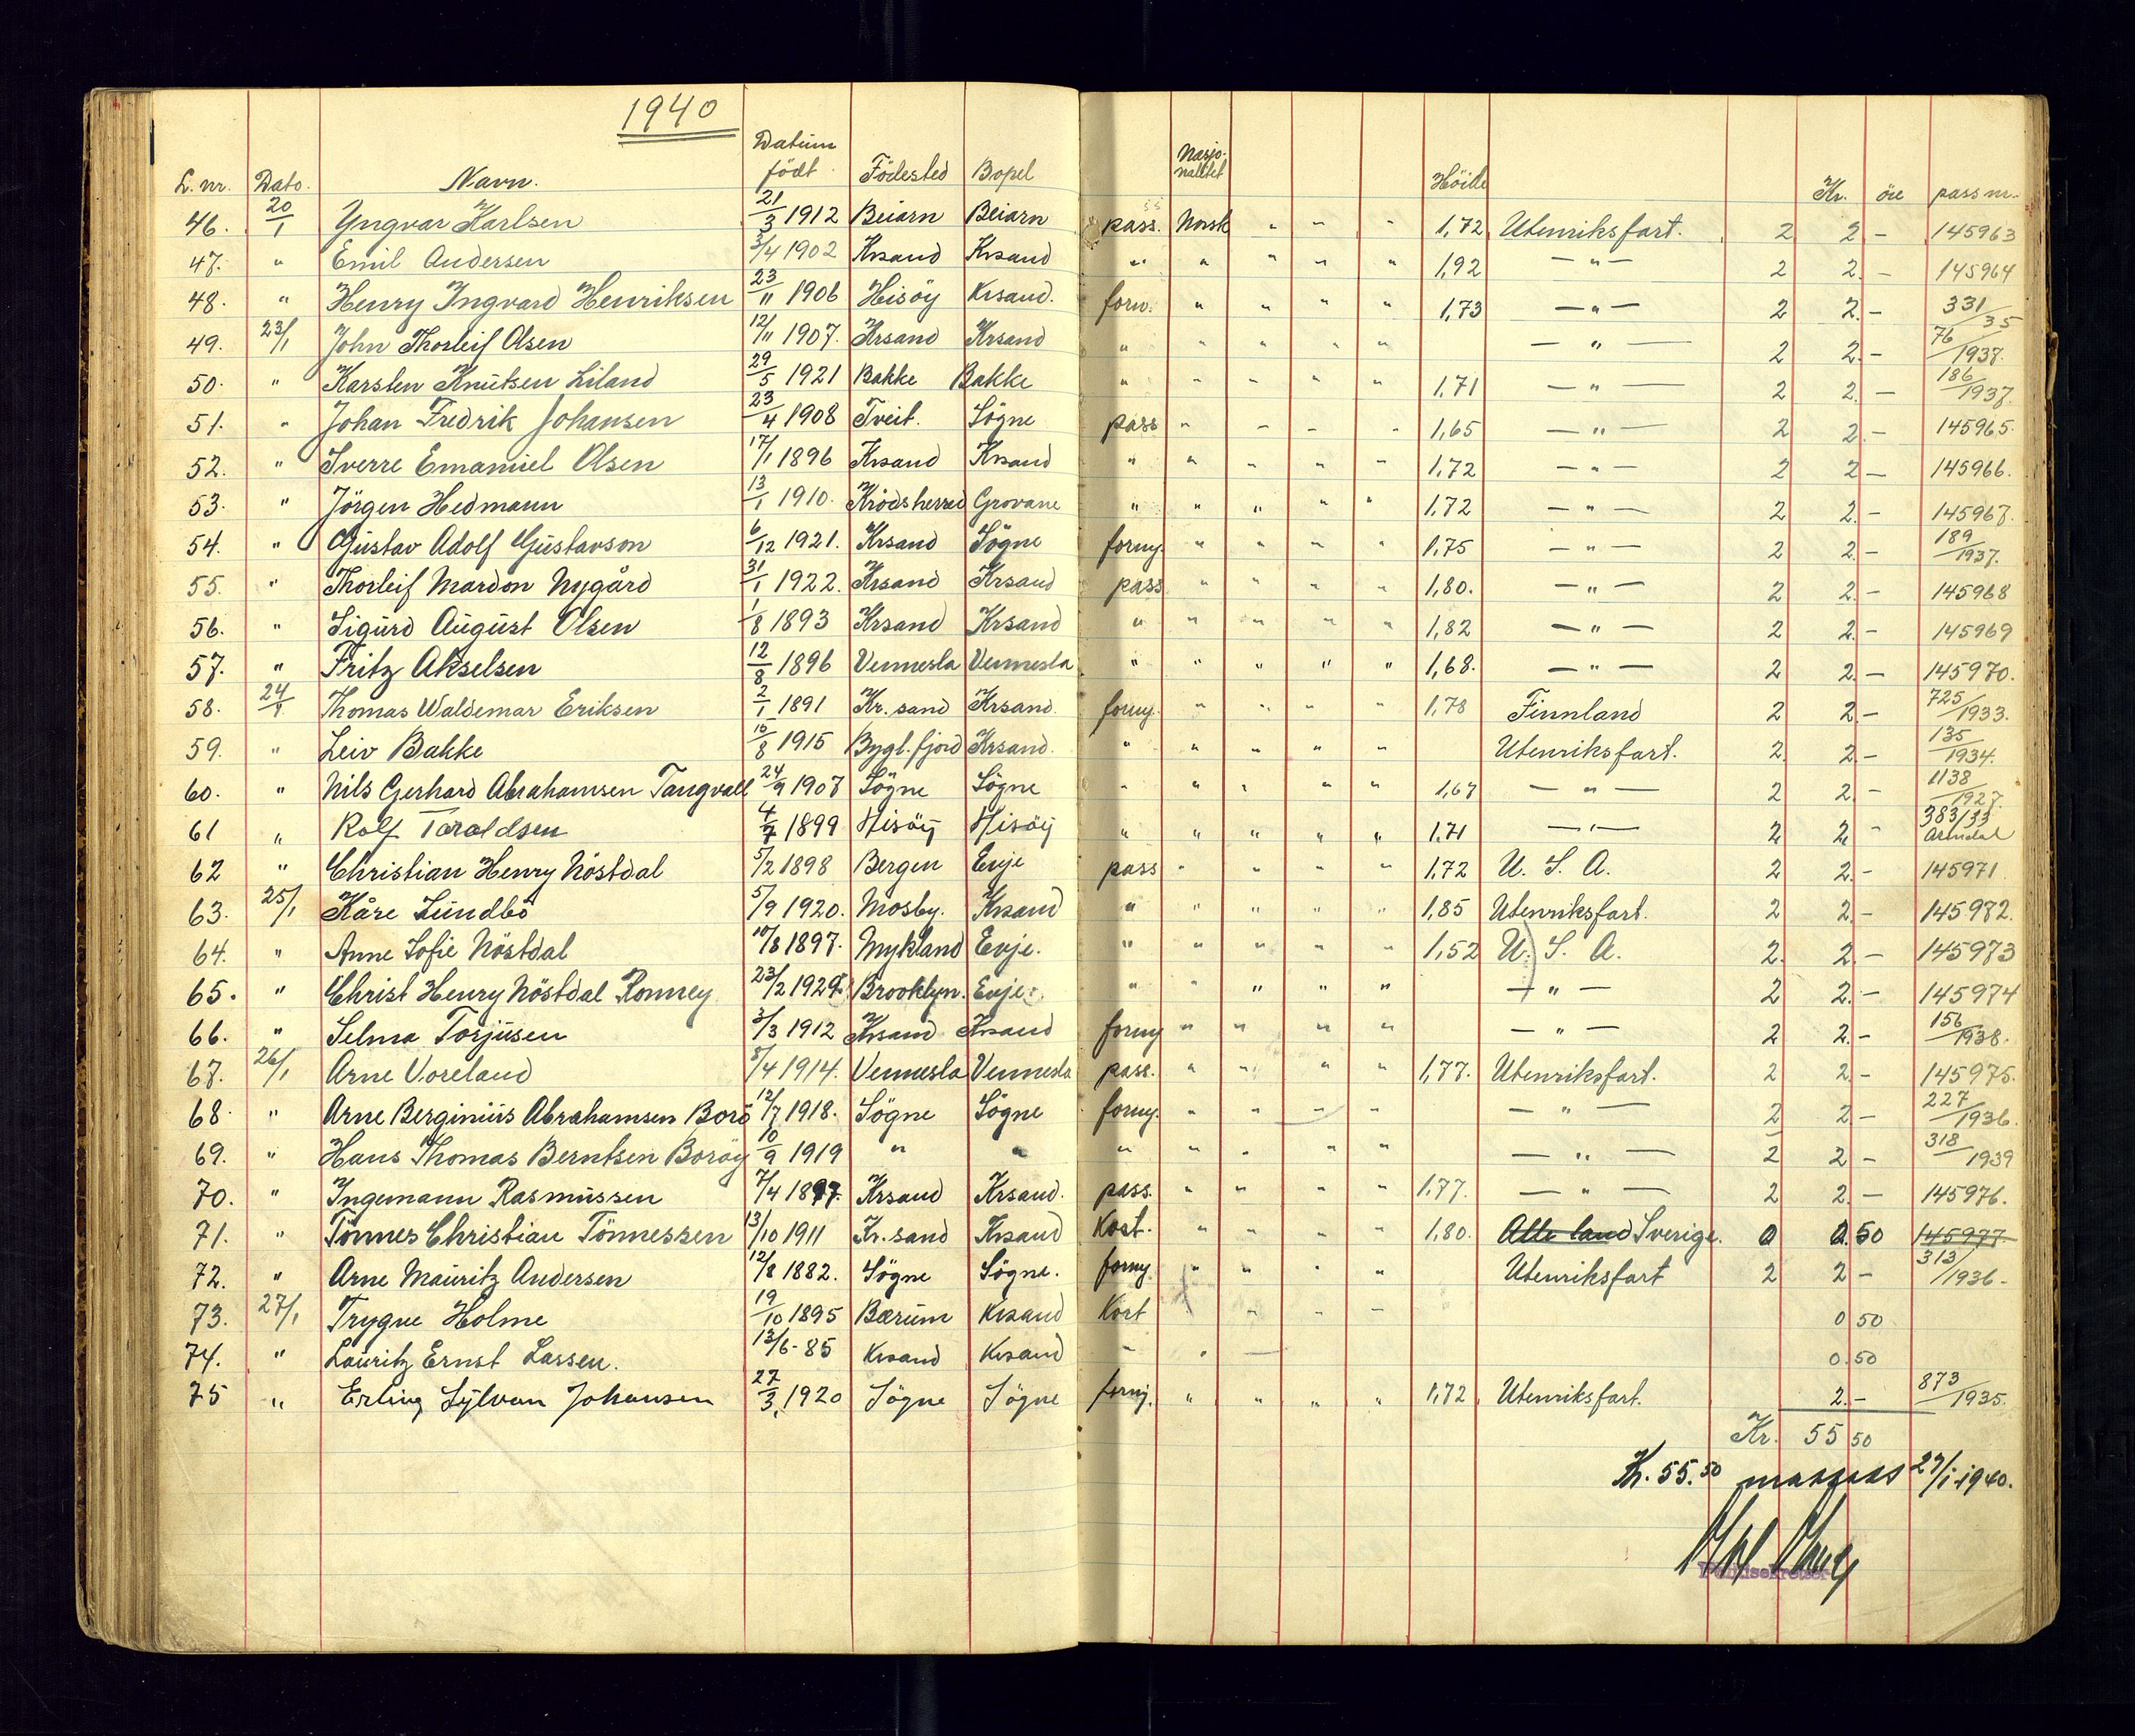 1940
L. nr. Dato. Navn. Datum födt Födested Bopel Nasjonalitet Höide Kr. öre pass nr.
46. 20/1 Yngvar Karlsen 21/3 1912 Beiarn Beiarn pass. Norsk " " " 1,72 Utenriksfart. 2 2 - 145963
47. " Emil Andersen 3/4 1902 Krsand Krsand " " " " " 1,92 — " — 2 2. - 145964
48. " Henry Ingvard Henriksen 23/11 1906 Hisöy Krsand. forn. " " " " 1,73 — " — 2 2. - 331/35
49. 23/1 John Thorleif Olsen 12/11 1907. Krsand Krsand " " " " " — " — 2 2. - 76/1937.
50. " Karsten Knutsen Liland 29/5 1921 Bakke Bakke " " " " " 1,71 — " — 2 2. - 186/1937.
51. " Johan Fredrik Johansen 23/4 1908 Tveit. Sögne pass " " " " 1,65 — " — 2 2 - 145965.
52. " Sverre Emanuel Olsen 17/1 1896 Krsand Krsand " " " " " 1,72 — " — 2 2 — 145966.
53. " Jörgen Hedmann 13/1 1910. Krödsherred Grovane " " " " " 1,72 — " — 2 2. - 145967.
54. " Gustav Adolf Gustavson 6/12 1921. Krsand Sögne forny. " " " " 1,75 — " — 2 2. - 189/1937.
55. " Thorleif Mardon Nygård 31/1 1922. Krsand Krsand pass " " " " 1,80. — " — 2 2. - 145968
56. " Sigurd August Olsen 1/8 1893 Krsand Krsand " " " " " 1,82 — " — 2 2. - 145969
57. " Fritz Akselsen 12/8 1896 Vennesla Vennesla " " " " " 1,68. — " — 2 2. — 145970.
58. 24/1 Thomas Waldemar Eriksen 2/1 1891 Kr. sand Krsand. forny. " " " " 1,78 Finnland 2 2. - 725/1933.
59. " Leiv Bakke 10/8 1915 Bygl. fjord Krsand. " " " " " Utenriksfart. 2 2. - 135/1934.
60. " Nils Gerhard Abrahamsen Tangvall 24/9 1907 Sögne Sögne " " " " " 1,67 — " — 2 2. - 1138/1927.
61 " Rolf Taraldsen 4/7 1899 Hisöy Hisöy " " " " " 1,71 — " — 2 2 - 383/33 Arendal
62 " Christian Henry Nöstdal 5/2 1898 Bergen Evje pass " " " " 1,72 U. S. A. 2 2. - 145971
63. 25/1 Kåre Lundbö 5/9 1920. Mosby. Krsand " " " " " 1,85 Utenriksfart. 2 2. - 145972.
64. " Anne Sofie Nöstdal 10/8 1897. Mykland Evje. " " " " " 1,52 U. S. A. 2. 2. — 145973
65. " Christ Henry Nöstdal Ronney 23/2 1929. Brooklyn. Evje. " " " " " — " — 2 2. - 145974
66. " Selma Torjusen 3/3 1912 Krsand Krsand forny " " " " — " — 2 2. - 156/1938.
67. 26/1 Arne Voreland 8/4 1914. Vennesla Vennesla pass. " " " " 1,77. Utenriksfart. 2 2. - 145975.
68. " Arne Berginius Abrahamsen Borö 12/7 1918. Sögne Sögne forny. " " " " — " — 2 2. - 227/1936.
69. " Hans Thomas Berntsen Boröy 10/9 1919 " " " " " " " — " — 2 2 - 318/1939
70. " Ingemann Rasmussen 7/4 1897. Krsand Krsand. pass. " " " " 1,77. — " — 2 2. — 145976.
71. " Tönnes Christian Tönnessen 13/10 1911 Kr. sand Krsand Kort. " " " " 1,80. Alle land Sverige. 0 0.50 145977.
72. " Arne Mauritz Andersen 12/8 1882. Sögne Sögne. forny. " " " " Utenriksfart 2 2 - 313/1936 -
73. 27/1 Trygve Holme 19/10 1895 Bærum Krsand Kort " " " 0 50
74. " Lauritz Ernst Lassen. 13/6 - 85 Krsand Krsand " " — 0.50
75 " Erling Sylvan Johansen 27/3. 1920 Sögne Sögne forny. " " " " 1,72 Utenriksfart. 2. - 873/1935.
Kr. 55 50
Kr. 55.50 27/1-1940.